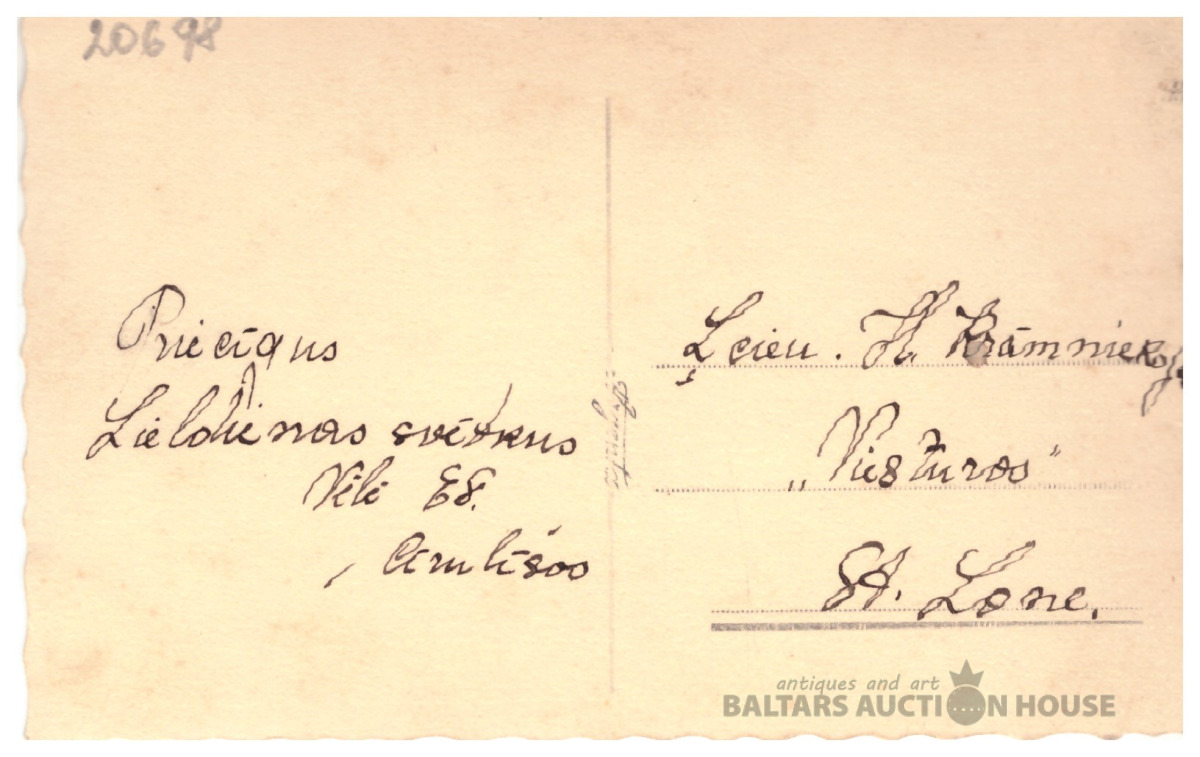 20698
Priecīgus
Lieldienas svētkus
Vēl
L cien. H. Krāmnieks
„Viesturos"
St. Lone.
antiques and art
BALTARS AUCTION HOUSE